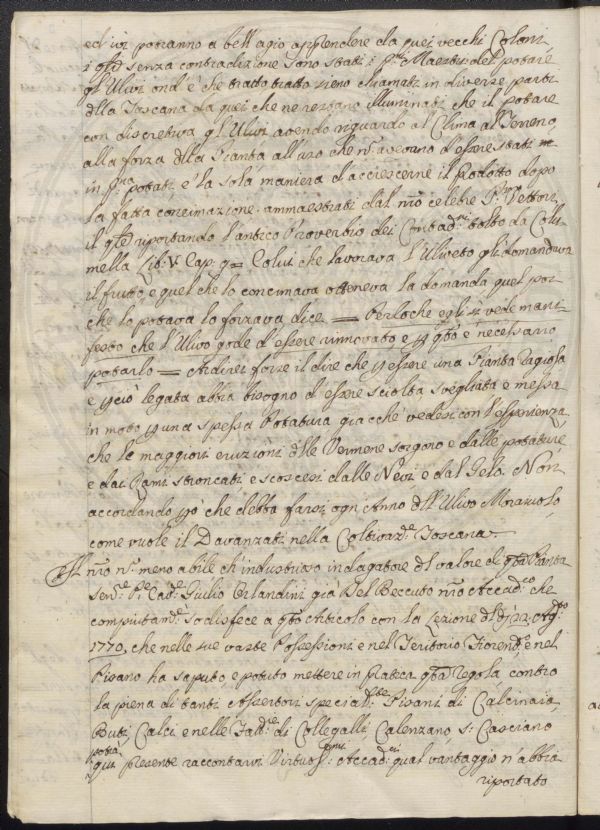 ed ivi potranno a bell'agio apprendere da quei vecchi Coloni,
i q.li senza contradizione sono stati i p.mi Maestri del potare
gl'Ulivi ond'è che tratto tratto sieno chiamati in diverse parti
dlla Toscana da quei che ne restano illuminati che il potare
con discretiva gl'Ulivi avendo riguardo al Clima al Terreno,
alla forza dlla Pianta all'uso che n' avevano d'essere stati
in p.ma potati, è la sola maniera d'accrescerne il Prodotto dopo
la fatta concimazione. ammaestrati dal nro celebre P. Vettori,
il q.le riportando l'antico Proverbio dei Contad.ni tolto da Colu-
mella Lib: V. Cap: 9 = Colui che lavorava l'Uliveto gli domandava
il frutto, e quel che lo concimava otteneva la domanda quel poi
che lo potava lo forzava dice = Perloche egli si vede mani-
festo che l'Ulivo gode d'essere rinnovato e p q.to è necessario
potarlo = Ardirei forse il dire che p essere una Pianta ragiosa
e p ciò legata abbia bisogno d'essere sciolta svegliata e messa
in moto p una spessa Potatura giacchè vedesi con l'esperienza
che le maggiori eruzioni dlle Vermene sorgono e dalle potature
e dai Rami stroncati, e scoscesi dalle Nevi e dal Gelo. Non
accordando p ò che debba farsi ogni Anno dll'Ulivo Moraiolo,
come vuole il Davanzati nella Coltivaz.e Toscana.
Il nro n meno abile ch'industrioso indagatore dl valore di q.ta Pianta
Sen.re P.re Cav.re Giulio Orlandini già Del Beccuto nro Accad.co che
compiutam.te sodisfece a q.to Articolo con la Lezione dl dì 22. Ag.to
1770, che nelle sue vaste Possessioni e nel Teritorio Fiorent.o e nel
Pisano ha saputo, e potuto mettere in pratica q.ta regola contro
la piena di tanti Assertori special.te Pisani di Calcinaia
Buti, Calci e nelle Fatt.rie di Collegalli Calenzano S. Casciano
potrà
qui presente raccontarvi Virtuos.mi Accad.ci qual vantaggio n'abbia
riportato